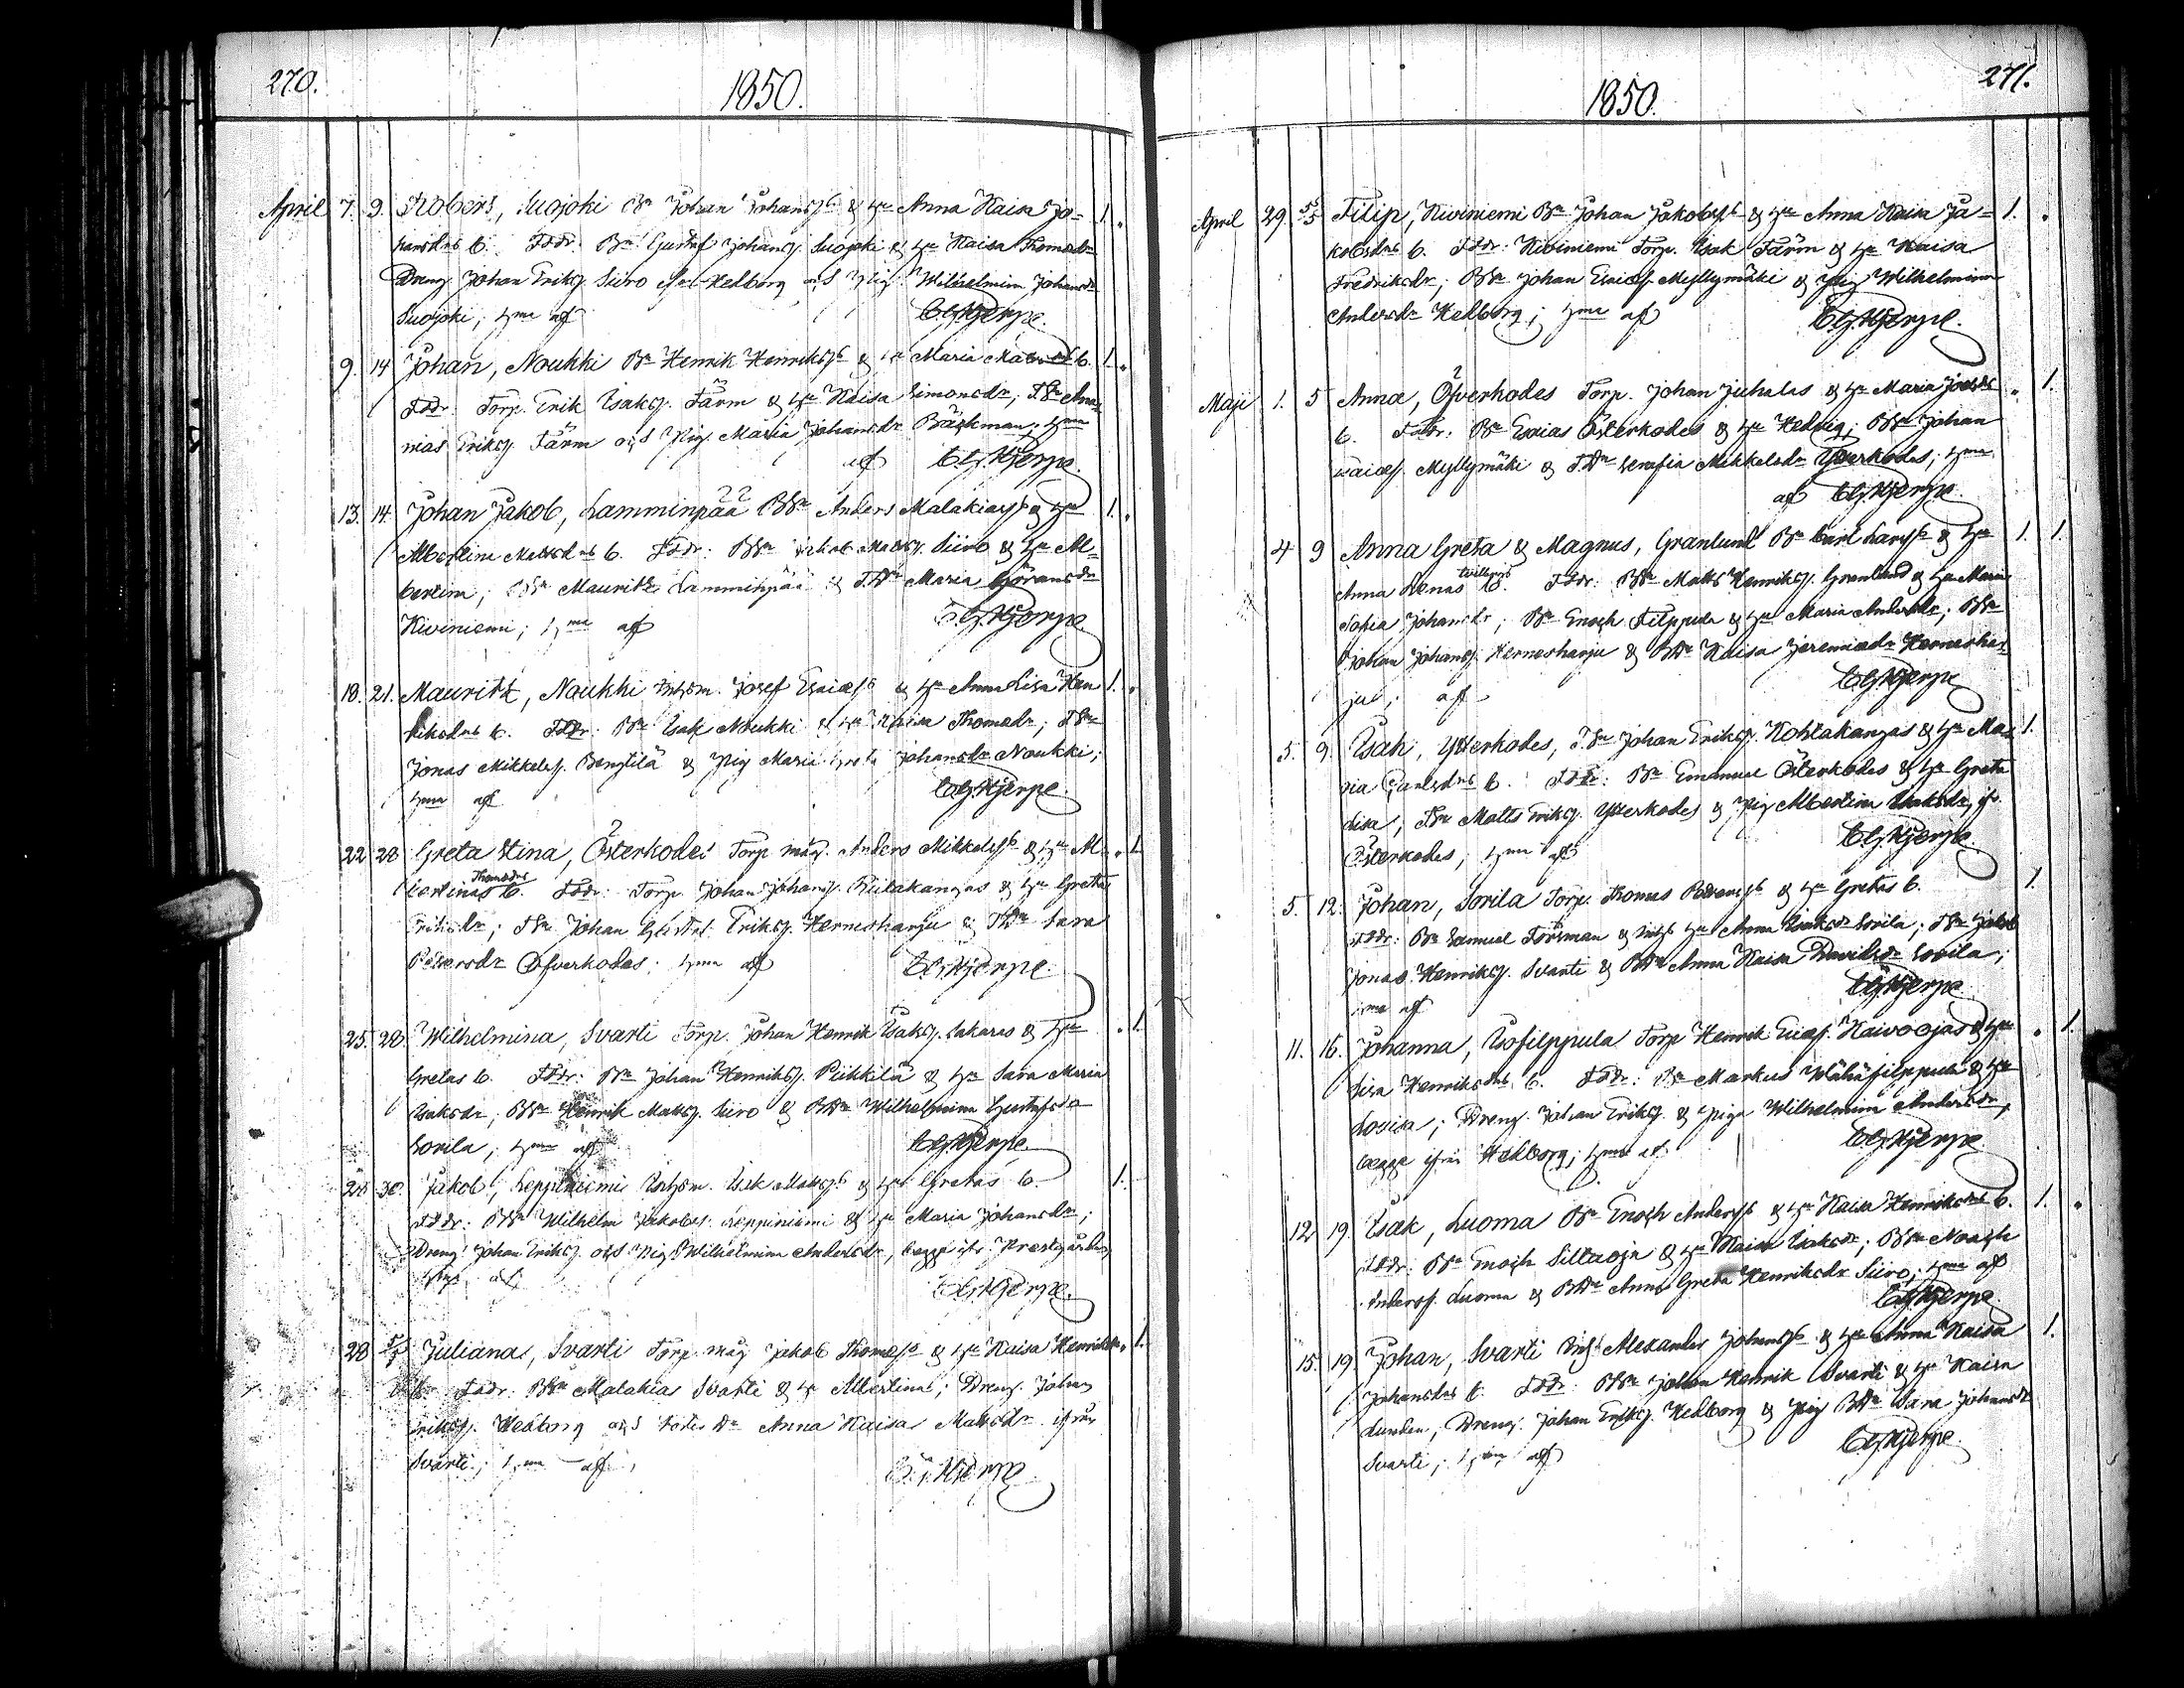 270.
1850.
April 7. 9. Robert, Suojoki Bn Johan Johanss & Hu Anna Kaisa Jo=
hansdrs b. Fddr. Bn Gustaf Johanss. Suojoki & Hu Kaisa Thomasdr
Dreng Johan Eriks. Siiro Hedborg och Pig. Wilhelmina Johansdr
Suojoki; af CGHjerpe.
9. 14 Johan, Noukki Bn Henrik Henrikss & Hu Maria b. 1.
Fddr. Torp. Erik Isaks. Färm & Hu Kaisa Simonsdr; Ana=
nias Eriks. Färm och Pig. Maria Johansdr Bäckman;
af CGHjerpe.
13. 14. Johan Jakob, Lamminpää BSn Anders Malakiass & Hu 1.
Albertina Mattsdrs b. Fddr: BSn Jakob Matts. Siiro & Hu Al=
bertina; BSn Mauritz Lamminpää & TDr Maria Göransdr
Kiviniemi; af CGHjerpe
18. 21. Mauritz, Noukki Inhom. Josef Esaiass & Hu Anna Lisa Hen 1.
riksdrs b. Fddr: Bn Isak Noukki & Hu Kaisa Thomasdr; TSn
Jonas Mikkels. Bengtilä & Pig Maria Greta Johansdr Noukki;
af CGHjerpe
22 28 Greta Stina, Österkodes Torp måg. Anders Mikkelss & Hu Al= 1.
bertinas Thomasdrs b. Fddr: Torp. Johan Johans. Riitakangas & Hu Greta
TSn Johan Gustaf Eriks. Herneshanju & TDr Sara
Petersdr Öfverkodes; af CGHjerpe.
25. 28. Wilhelmina, Svarti Torp. Johan Henrik Isaks. Sakaras & Hu 1.
Gretas b. Fddr: Bn Johan Henriks. Piikkilä & Hu Sara Maria
Isaksdr; BSn Henrik Matts. Siiro & BDr Wilhelmina Gustafsdr
Sorila; af CGHjerpe.
28 30. Jakob, Leppiniemi Inhom. Isak Mattss & Hu Gretas b. 1.
Fddr: BSn Wilhelm Jakobs. Leppiniemi & Hu Maria Johansdr;
Dreng Johan Eriks. och Pig Wilhelmina Andersdr, begge ifr. Prestgården
af CGHjerpe.
28 5/5 Juliana, Svarti Torp. måg Jakob Thomass & Hu Kaisa 1.
Fddr: BSn Malakias Svarti & Hu Albertina; Dreng. Johan
Eriks. Hedborg och Anna Kaisa Mattsdr ifrån
Svarti; af CGHjerpe
271.
1850.
April 29. 5/5 Filip, Kiviniemi Bn Johan Jakobss & Hu Anna Kaisa Ja= 1.
kobsdrs b. Fddr: Kiviniemi Torp. Isak Färm & Hu Kaisa
Fredriksdr; BSn Johan Esaiass. Myllymäki & Pig Wilhelmina
Andersdr Hedborg; af CGHjerpe.
Maji 1. 5 Anna, Öfverkodes Torp. Johan Juhalas & Hu Maria 1.
b. Fddr: Bn Esaias Österkodes & Hu Hedvig; BSn Johan
Esaiass. Myllymäki & TDr Serafia Mikkelsdr Ytterkodes;
af CGHjerpe.
4 9 Anna Greta & Magnus, Granlund Bn Carl Larss & Hu 1. 1.
Anna Lenas tvillings b. Fddr: BSn Matts Henriks. Granlund & Hu Maria
Sofia Johansdr; Bn Enoch Filppula & Hu Maria Andersdr; BSn
Johan Johans. Herneshanju & BDr Kaisa Jeremiadr Herneshan=
ju; af CGHjerpe
5. 9. Isak, Ytterkodes, TSn Johan Eriks. Kohtakangas & Hu Ma= 1.
ria Carlsdrs b. Fddr: Bn Emanuel Österkodes & Hu Greta
Lisa; TSn Matts Eriks. Ytterkodes & Pig Albertina Isaksdr ifr.
Österkodes; af CGHjerpe
5. 12. Johan, Sorila Torp. Thomas & Hu Gretas b. 1.
Fddr: Bn Samuel Forsman & Hu Anna Isaksdr Sorila; TSn Jakob
Jonas Henriks. Svarti & BDr Anna Kaisa Davidsdr Sorila;
af CGHjerpe
11. 16. Johanna, Isofilppula Torp Henrik Kaivoojas & Hu 1.
Lisa Henriksdrs b. Fddr: Bn Markus Wähäfilppula & Hu
Lovisa; Dreng. Johan Eriks. & Piga Wilhelmina Andersdr,
begge ifrån Hedborg; af CGHjerpe
12 19. Isak, Luoma Bn Enoch Anderss & Hu Kaisa Henriksdrs b. 1.
Fddr: Bn Enoch Siltaoja & Hu Kaisa Isaksdr; BSn Noach
Anderss. Luoma & BDr Anna Greta Henriksdr Siiro; af
CGHjerpe
15 19. Johan, Svarti Alexander Johanss & Hu Anna Kaisa 1.
Johansdrs b. Fddr: BSn Johan Henrik Svarti & Hu Kaisa
Lunden; Dreng. Johan Eriks. Hedborg & Pig BDr Sara Johansdr
Svarti; af CGHjerpe.